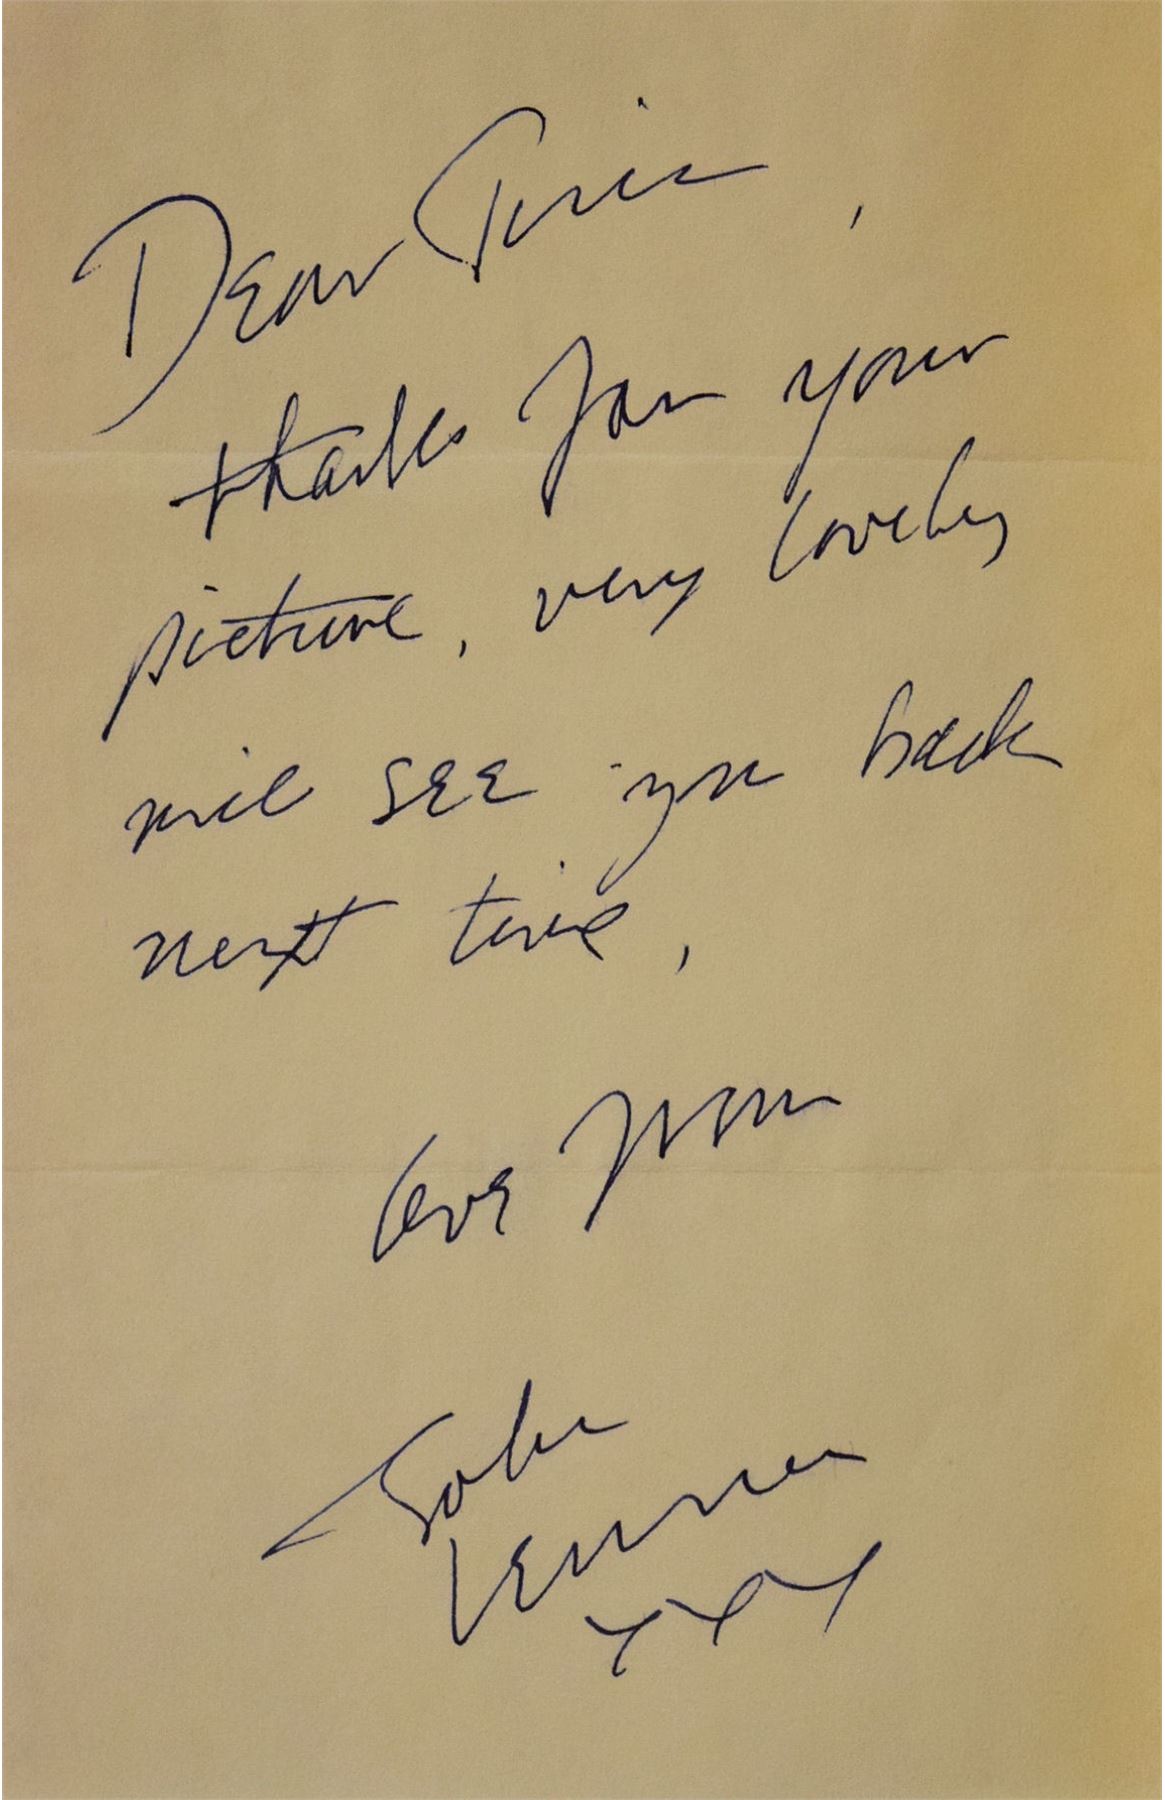 Dear Teric,
thanks for your
picture, very lovely
will see you back
next time,
love from
John
Lennon
xxx